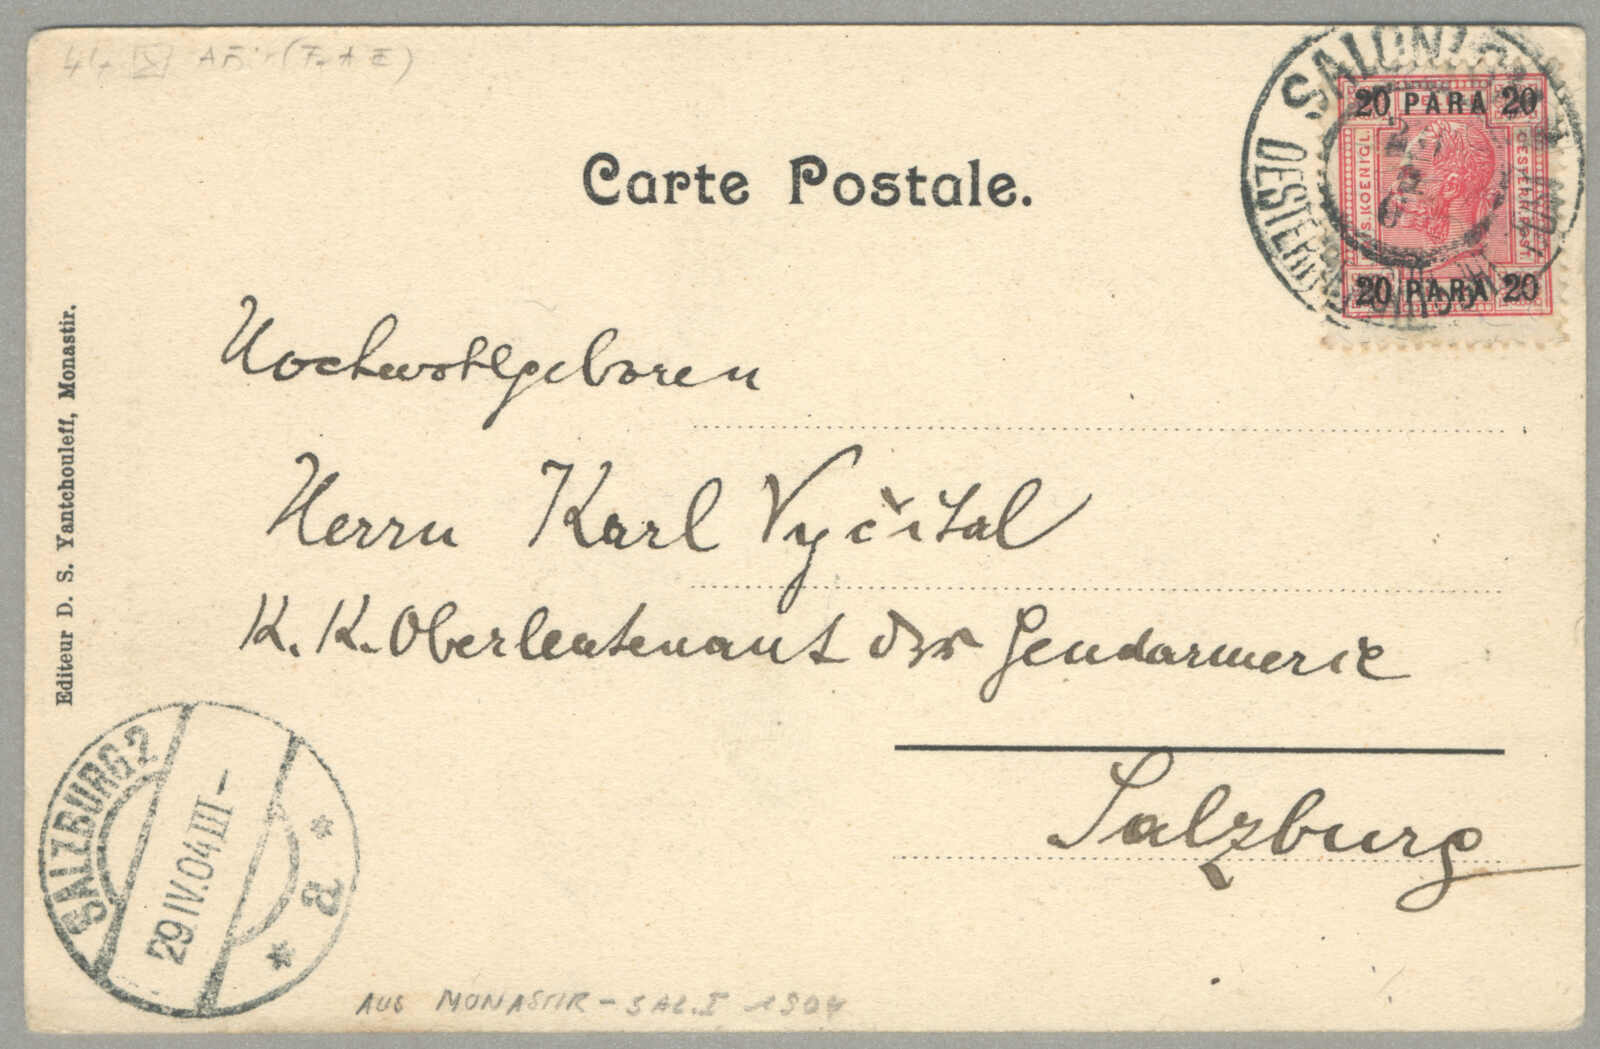 Carte Postale.
SALONICH
OESTERR
20 PARA 20
S.KOENIGL.
OESTERR.POST.
20 PARA 20
Hochwohlgeboren
Herrn Karl Vyčital
K. K. Oberleutenant der Gendarmerie
Salzburg
Editeur D. S. Yantchouleff, Monastir.
SALZBURG 2
29 IV.04 III-
* a *
AUS MONASTIR - SAL.I 1904